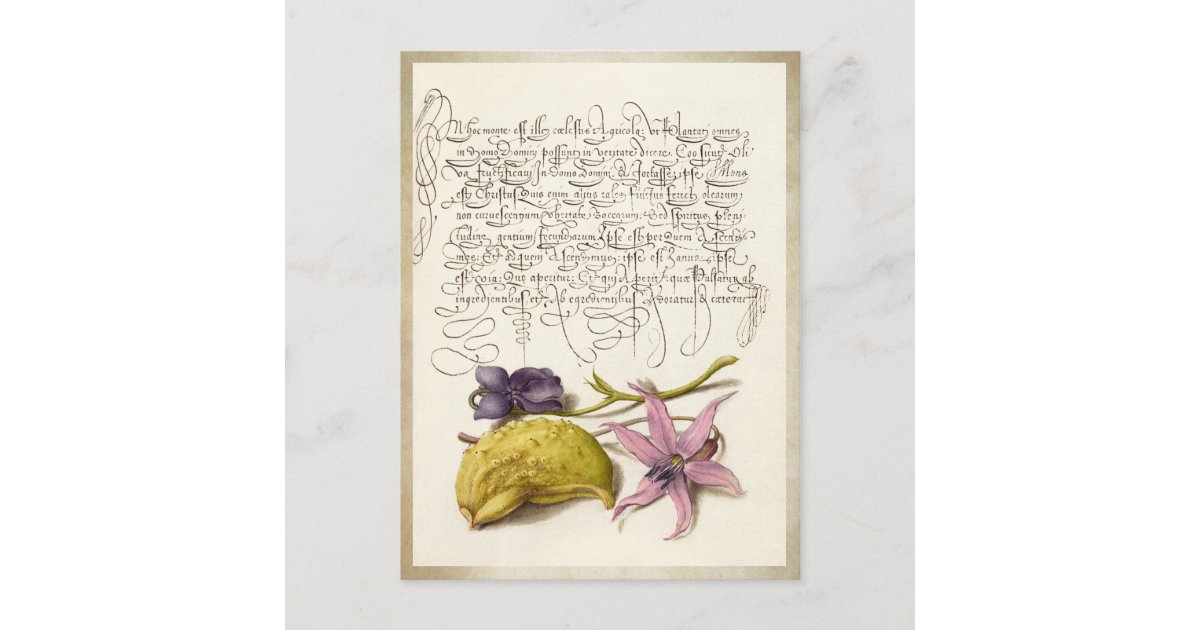 In hoc monte est ille cœlestis Agricola: Vt Plantati omnes
in Domo Domini possunt in veritate dicere. Ego sicut Oli
va fructificavi In Domo Domini. & fortasse ipse Mons
est Christus. Quis enim alius tales fructus ferret olearum
non curvescentium vbertate Baccarum: Sed spiritus pleni
tudine gentium fecundarum Ipse est per Quem Ascendi
mus: Et ad quem Ascendimus: ipse est Ianua: ipse
est via: Quæ aperitur: Et qui Aperit: quæ Pulsatur ab
ingredientibus, et Ab egredientibus Adoratur & cætera